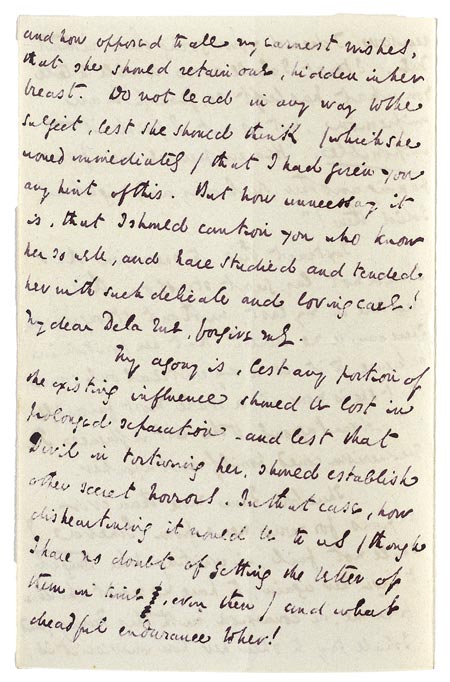 and how opposed to all my earnest wishes,
that she should retain one, hidden in her
breast. Do not lead in any way to the
subject, lest she should think (which she
would immediately) that I had given you
any hint of this. But how unnecessary it
is, that I should caution you who know
her so well, and have studied and tended
her with such delicate and loving care!
My dear De la Rue, forgive me.
My agony is, lest any portion of
the existing influence should be lost in
prolonged separation - and lest that
Devil in torturing her, should establish
other secret horrors. In that case, how
disheartening it would be to us (though
I have no doubt of getting the better of
them in time, even then) and what
dreadful endurance to her!